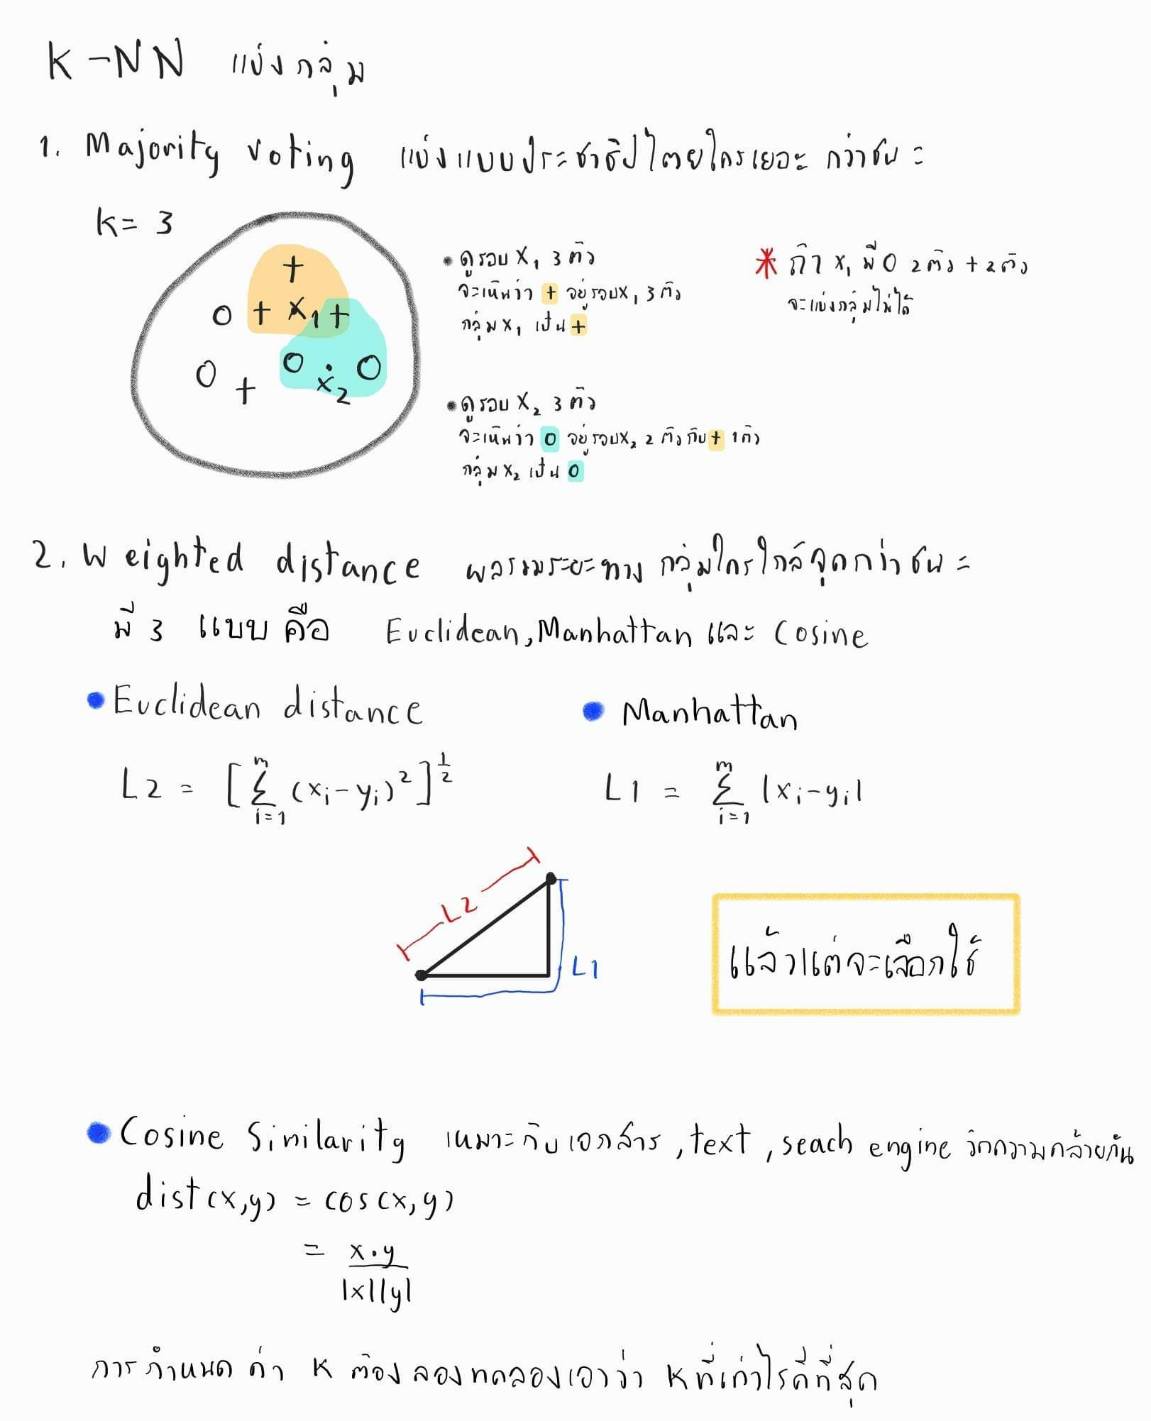 K-NN แบ่งกลุ่ม
1. Majority voting แบ่งแบบประชาธิปไตยใครเยอะกว่าชนะ
K = 3
+
O + X₁ +
O + O X₂ O
• ดูรอบ X₁ 3 ตัว
จะเห็นว่า + อยู่รอบ X₁ 3 ตัว
กลุ่ม X₁ เป็น +
* ถ้า X₁ มี O 2 ตัว + 2 ตัว
จะแบ่งกลุ่มไม่ได้
• ดูรอบ X₂ 3 ตัว
จะเห็นว่า O อยู่รอบ X₂ 2 ตัวกับ + 1 ตัว
กลุ่ม X₂ เป็น O
2. Weighted distance ผลรวมระยะทาง กลุ่มใครใกล้จุดกว่าชนะ
มี 3 แบบ คือ Euclidean, Manhattan และ Cosine
• Euclidean distance
L2 = [∑ᵢ₌₁ᵐ (xᵢ - yᵢ)²]^½
• Manhattan
L1 = ∑ᵢ₌₁ᵐ |xᵢ - yᵢ|
L2
L1
แล้วแต่จะเลือกใช้
• Cosine Similarity เหมาะกับเอกสาร, text, seach engine วัดความคล้ายกัน
dist(x,y) = cos(x,y)
= x·y / |x||y|
การกำหนด ค่า K ต้องลองทดลองเอาว่า K ที่เท่าไรดีที่สุด